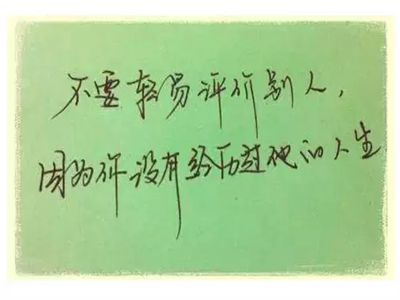 不要轻易评价别人，
因为你没有经历过他的人生